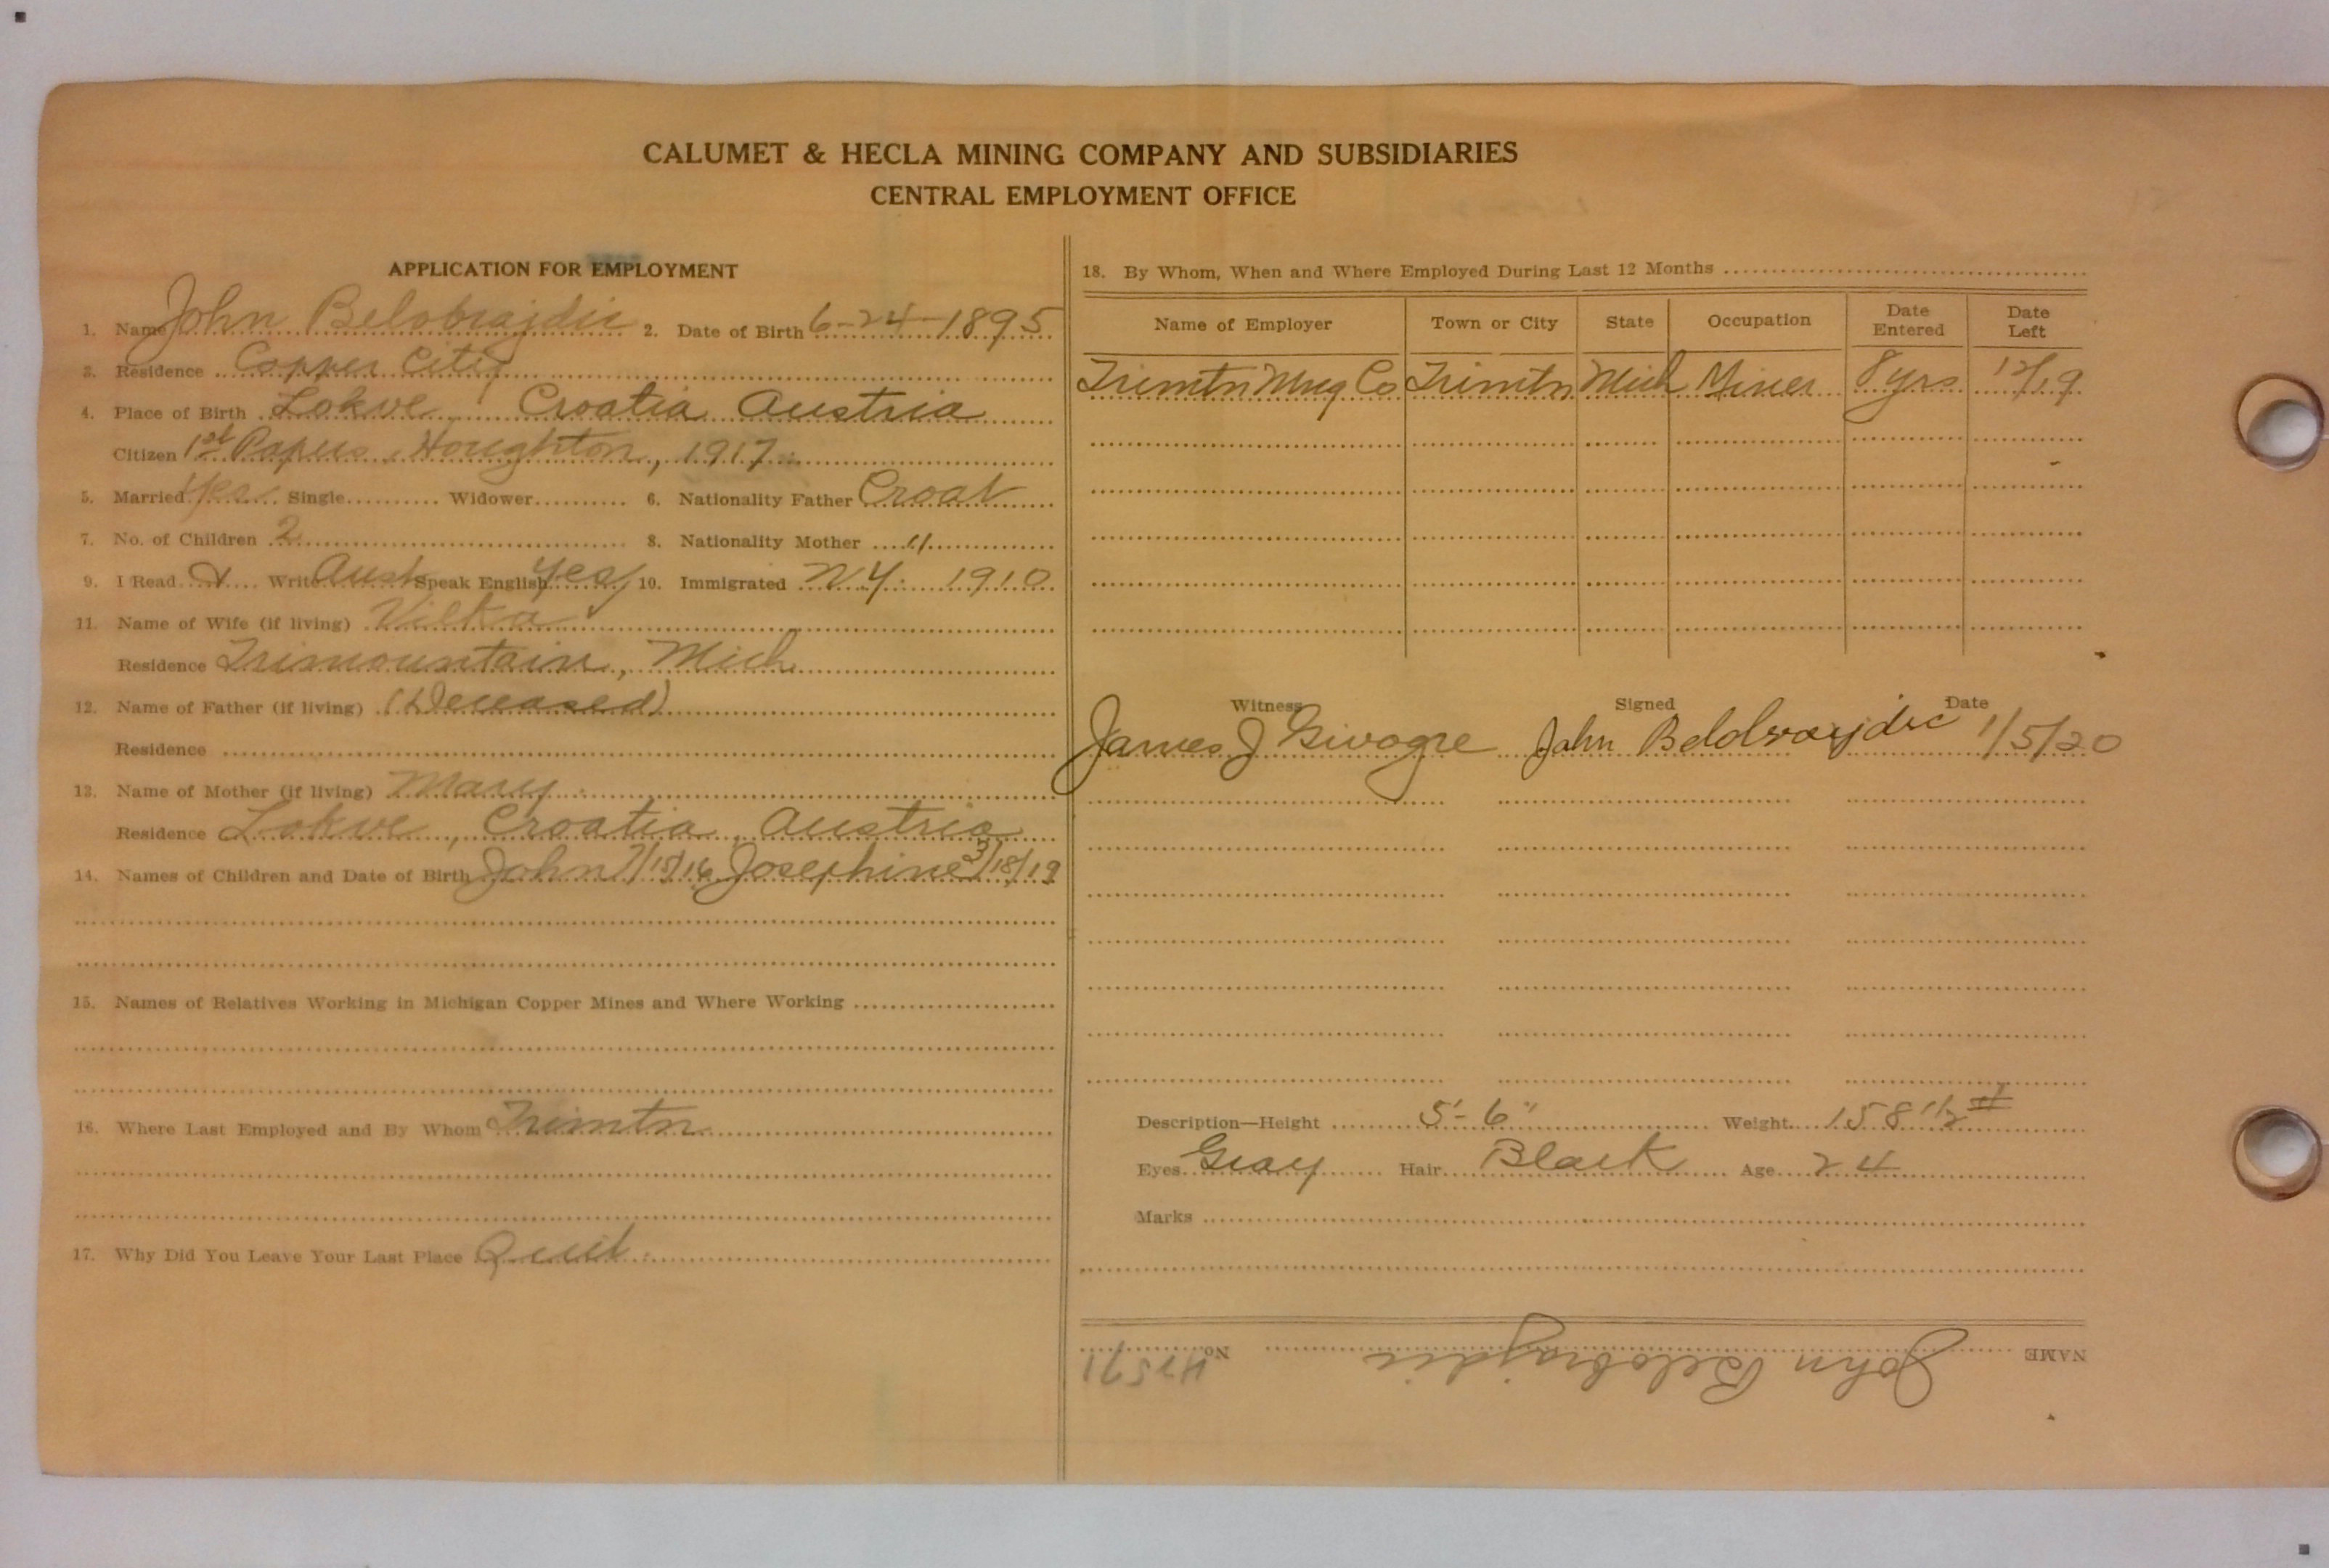 CALUMET & HECLA MINING COMPANY AND SUBSIDIARIES
CENTRAL EMPLOYMENT OFFICE
APPLICATION FOR EMPLOYMENT
1. Name John Belobrajdic 2. Date of Birth 6-24-1895
3. Residence Copper City
4. Place of Birth Lokve, Croatia Austria
Citizen 1st Papers, Houghton, 1917.
5. Married Yes Single Widower 6. Nationality Father Croat
7. No. of Children 2 8. Nationality Mother "
9. I Read & Write Aust Speak English Yes 10. Immigrated N.Y. 1910
11. Name of Wife (if living) Vilka
Residence Trimountain, Mich
12. Name of Father (if living) (Deceased)
Residence
13. Name of Mother (if living) Mary
Residence Lokve, Croatia, Austria
14. Names of Children and Date of Birth John 7/15/16 Josephine 3/18/19
15. Names of Relatives Working in Michigan Copper Mines and Where Working
16. Where Last Employed and By Whom Trimtn
17. Why Did You Leave Your Last Place Quit.
18. By Whom, When and Where Employed During Last 12 Months
Name of Employer Town or City State Occupation Date Entered Date Left
Trimtn Mng Co Trimtn Mich Miner 8 yrs. 12/19
Witness Signed Date
James J John Belobrajdic 1/5/20
Description—Height 5'-6" Weight 158 1/2 #
Eyes Gray Hair Black Age 24
Marks
NAME John Belobrajdic No. 42571